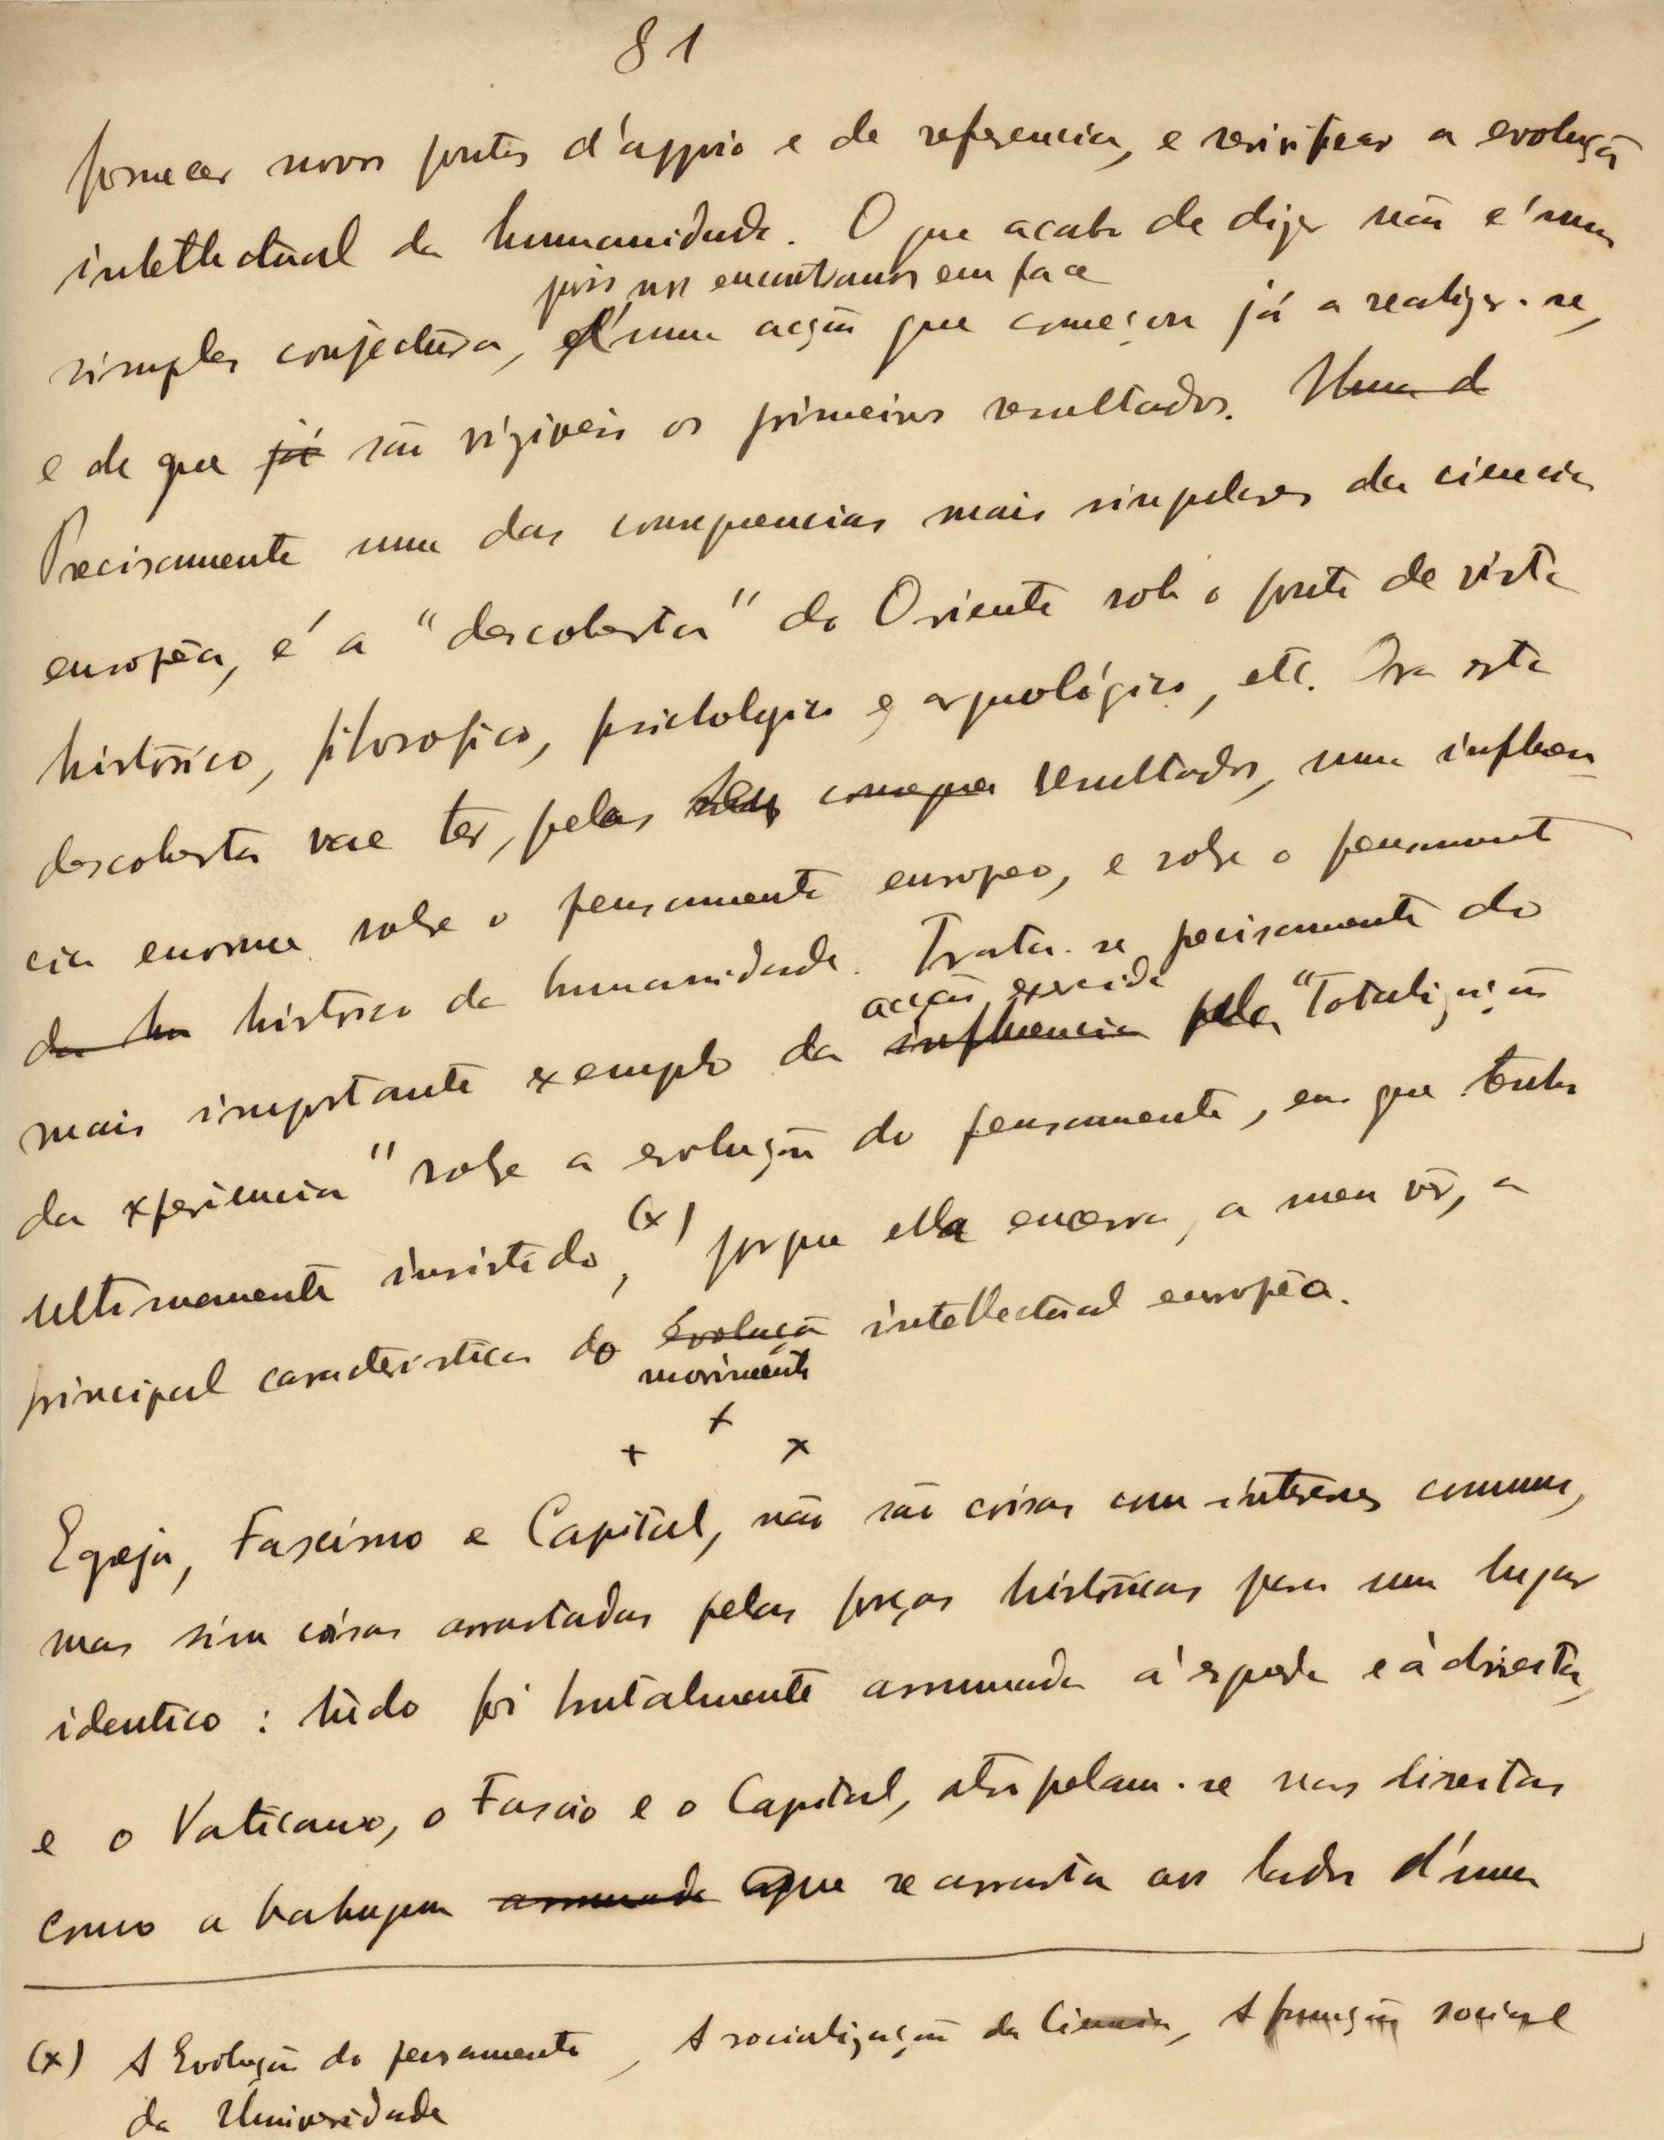 81
fornecer novos pontos d'appoio e de referencia, e revivificar a evolução
intellectual da humanidade. O que acabo de dizer não é uma
pois nos encontramos em face
simples conjectura, d'uma acção que começou já a realizar-se,
e de que já são visiveis os primeiros resultados. Uma d
Precisamente uma das consequencias mais singulares da ciencia
européa, é a "descoberta" do Oriente sob o ponto de vista
histórico, filosofico, psicologico e arqueológico, etc. Ora esta
descoberta vae ter, pelos seus conseque resultados, uma influen
cia enorme sobre o pensamento europeo, e sobre o pensamento
da hu histórico da humanidade. Trata-se precisamente do
acção exercida
mais importante exemplo da influencia pela "Totalização
da experiencia" sobre a evolução do pensamento, em que tenho
ultimamente insistido, (x) porque ella encerra, a meu vêr, a
principal caracteristica do evolução intellectual européa.
movimento
+
+ x
Egreja, Fascismo e Capital, não são coisas com interesses comuns,
mas sim coisas arrastadas pelas forças históricas para um lugar
identico: tudo foi brutalmente arrumado á esquerda e á direita,
e o Vaticano, o Fascio e o Capital, atropelam-se nas direitas
como a bagagem arrumada que se arrasta aos lados d'uma
(x) A Evolução do pensamento, A socialização da Ciencia, A função social
da Universidade